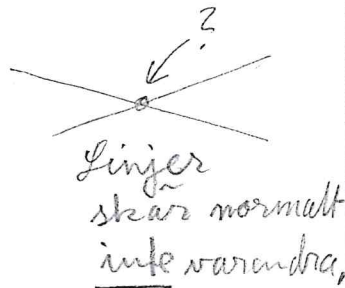 ?
Linjer
skär normalt
inte varandra,